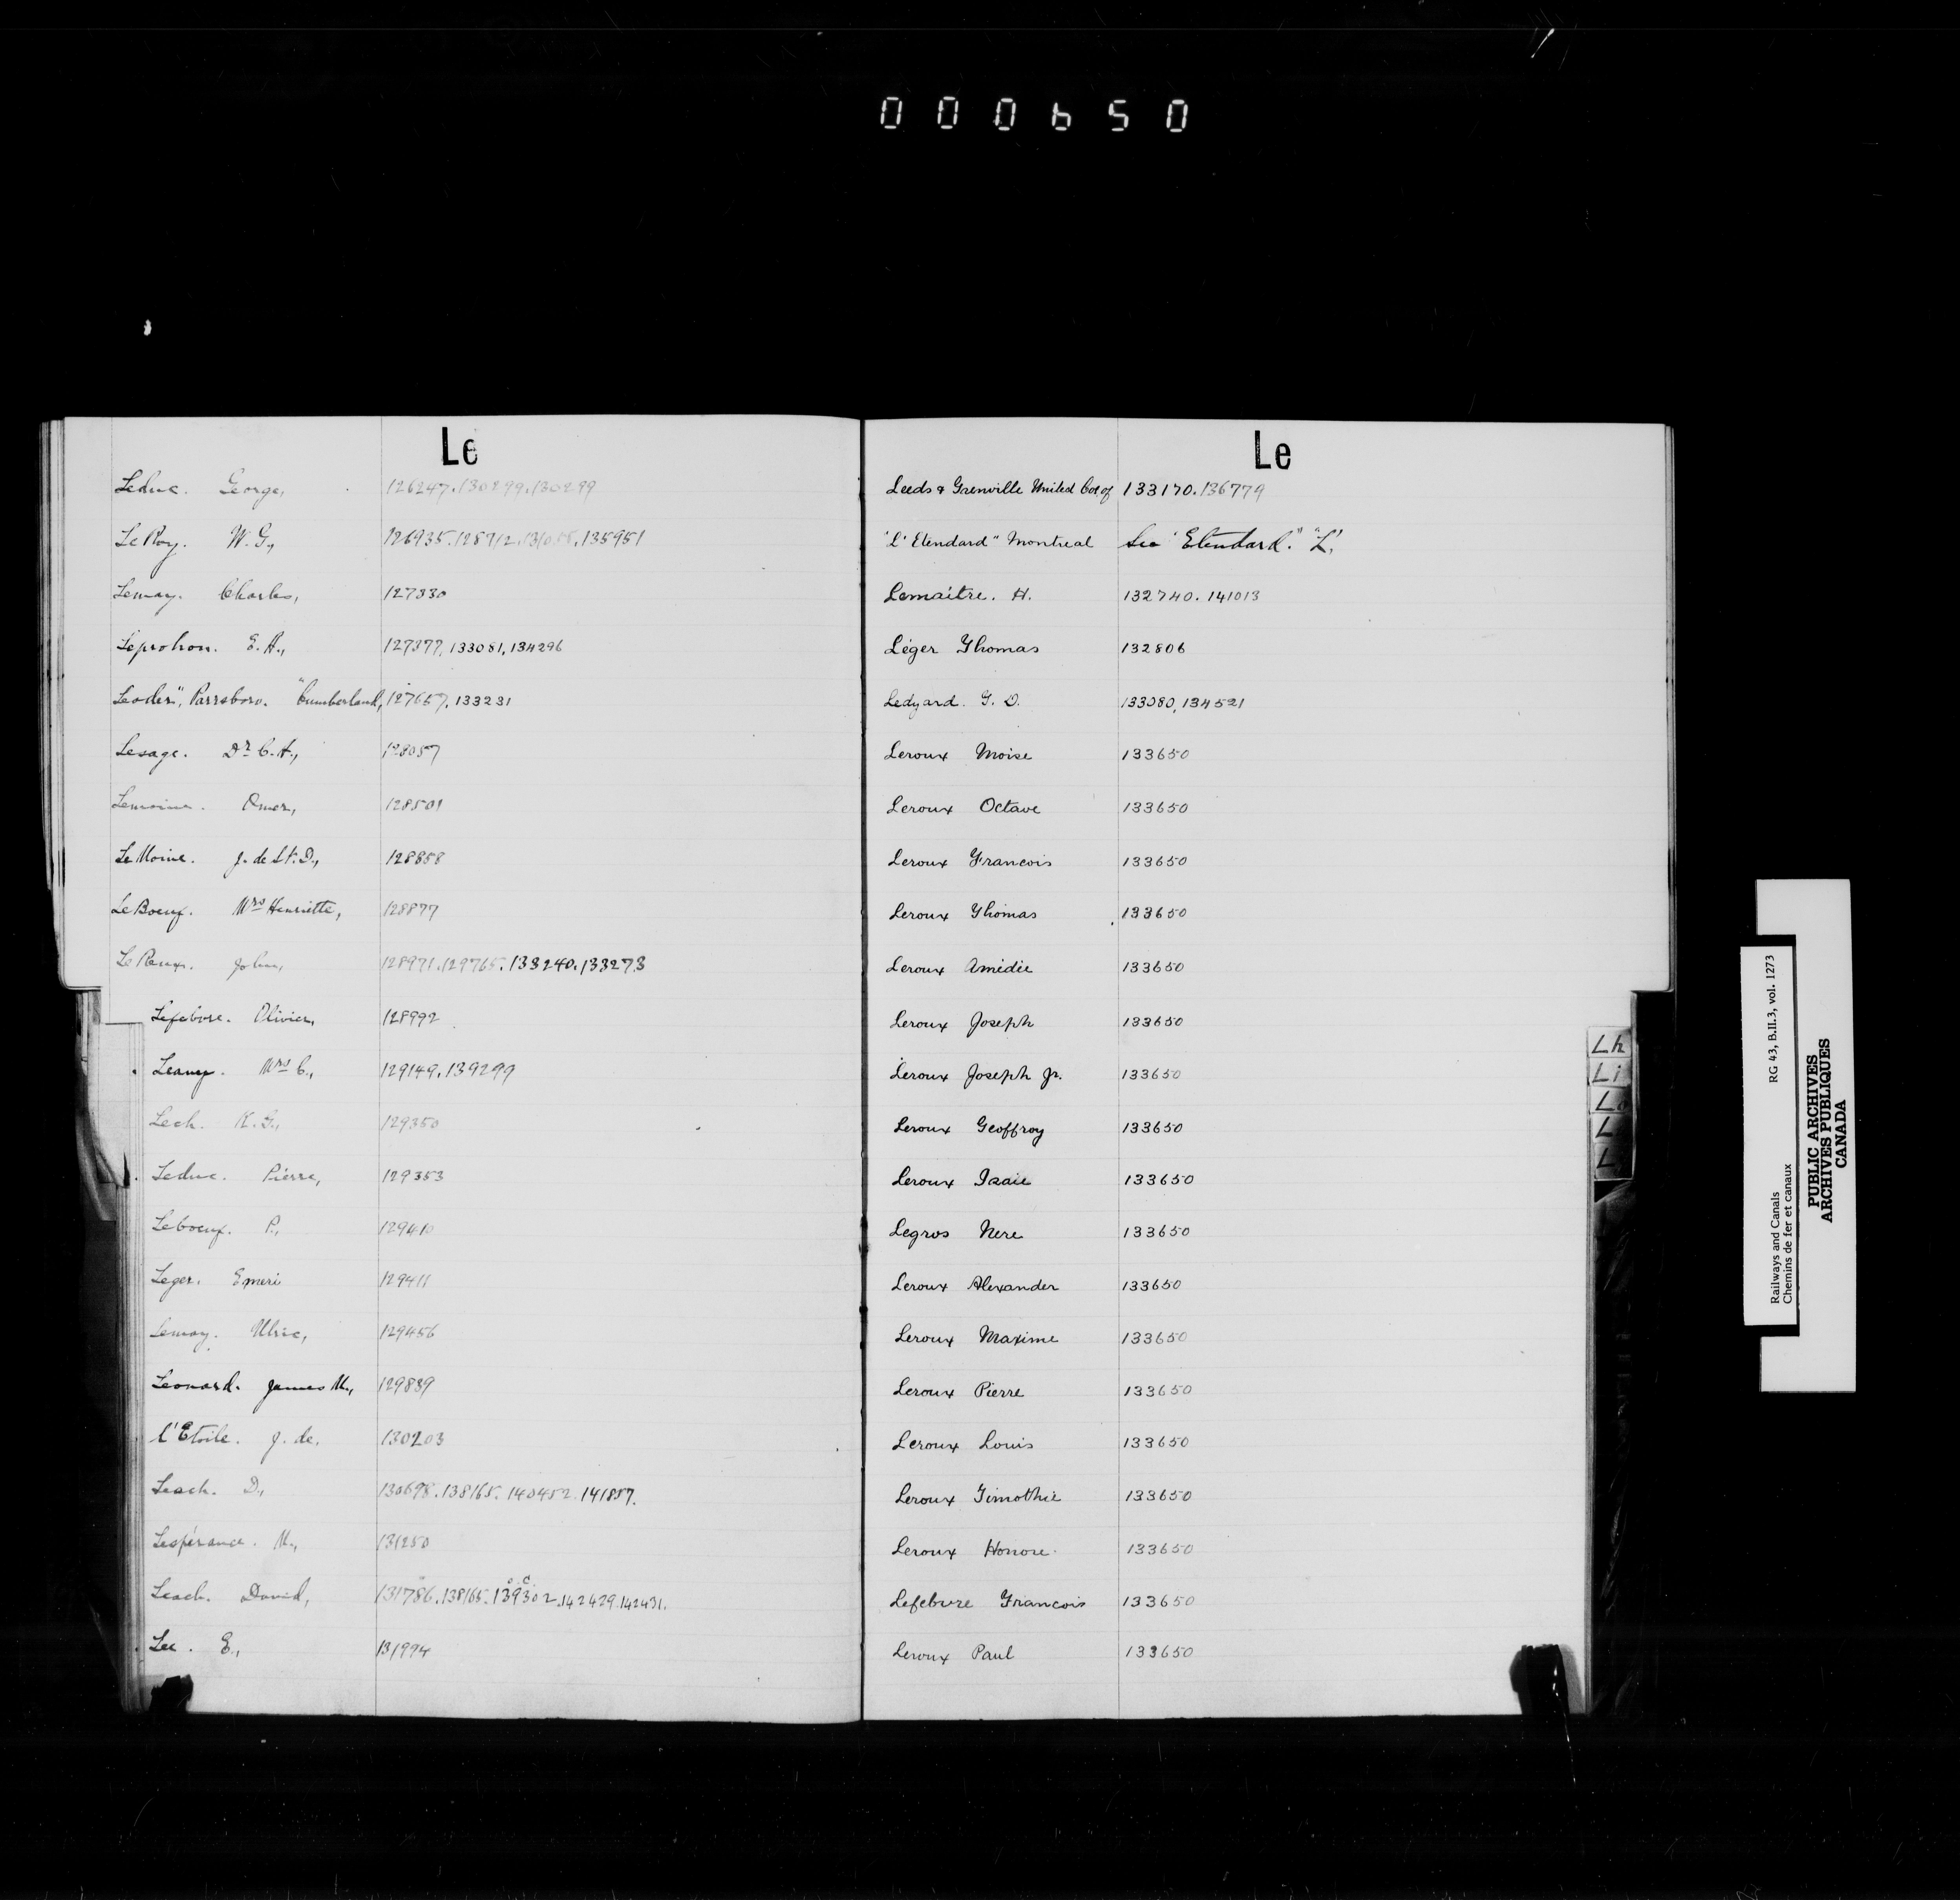 000650
Le
Leduc. George, 126247.130299.130299
LeRoy. W.G., 126935.128712.131058.135951
Lemay. Charles, 127330
Leprohon. E.A., 127377, 133081, 134296
Leader", Parrsboro. "Cumberland, 127657, 133231
Lesage. Dr C.A., 128057
Lemoine. Omer, 128501
LeMoine. J. de St. D., 128858
LeBoeuf. Mrs Henriette, 128877
Le Reux. John, 128971.129765.133240.133273
Lefebvre. Olivier, 128992
Leamy. Mrs C., 129149.139299
Lech. K.G., 129350
Leduc. Pierre, 129353
Leboeuf. P., 129410
Leger. Emeri 129411
Lemay. Ulric, 129456
Leonard. James M., 129839
l'Etoile. J. de. 130203
Leach. D., 130698.138165.140452.141857.
Lespérance. M., 131250
Leach. David, 131786.138165.139302.142429.142431.
Lee. E., 131994
Le
Leeds & Grenville United Cos. of 133170.136779
"L'Etendard" Montreal See "Etendard." "L'.
Lemaitre. H. 132740. 141013
Léger Thomas 132806
Ledyard. T. D. 133080, 134521
Leroux Moise 133650
Leroux Octave 133650
Leroux Francois 133650
Leroux Thomas 133650
Leroux Amédée 133650
Leroux Joseph 133650
Leroux Joseph Jr. 133650
Leroux Geoffroy 133650
Leroux Isaie 133650
Legros Nere 133650
Leroux Alexander 133650
Leroux Maxime 133650
Leroux Pierre 133650
Leroux Louis 133650
Leroux Timothie 133650
Leroux Honore. 133650
Lefebvre Francois 133650
Leroux Paul 133650
Lh
Li
Lo
L
L
Railways and Canals RG 43, B.II.3, vol. 1273
Chemins de fer et canaux
PUBLIC ARCHIVES
ARCHIVES PUBLIQUES
CANADA